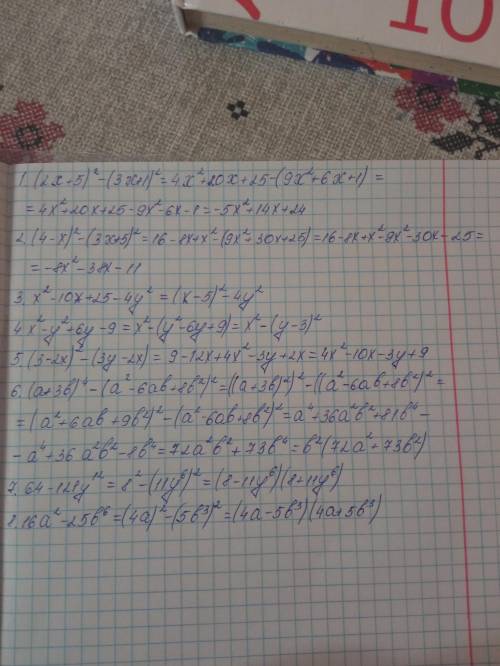 10
1. (2x+5)²-(3x+1)²=4x²+20x+25-(9x²+6x+1)=
=4x²+20x+25-9x²-6x-1=-5x²+14x+24
2. (4-x)²-(3x+5)²=16-8x+x²-(9x²+30x+25)=16-8x+x²-9x²-30x-25=
=-8x²-38x-11
3. x²-10x+25-4y²=(x-5)²-4y²
4. x²-y²+6y-9=x²-(y²-6y+9)=x²-(y-3)²
5. (3-2x)²-(3y-2x)=9-12x+4x²-3y+2x=4x²-10x-3y+9
6. (a+3b)⁴-(a²-6ab+8b²)²=((a+3b)²)²-((a²-6ab+8b²)²=
=(a²+6ab+9b²)²-(a²-6ab+8b²)²=a⁴+36a²b²+81b⁴-
-a⁴+36a²b²-8b⁴=72a²b²+73b⁴=b²(72a²+73b²)
7. 64-121y¹²=8²-(11y⁶)²=(8-11y⁶)(8+11y⁶)
8. 16a²-25b⁶=(4a)²-(5b³)²=(4a-5b³)(4a+5b³)